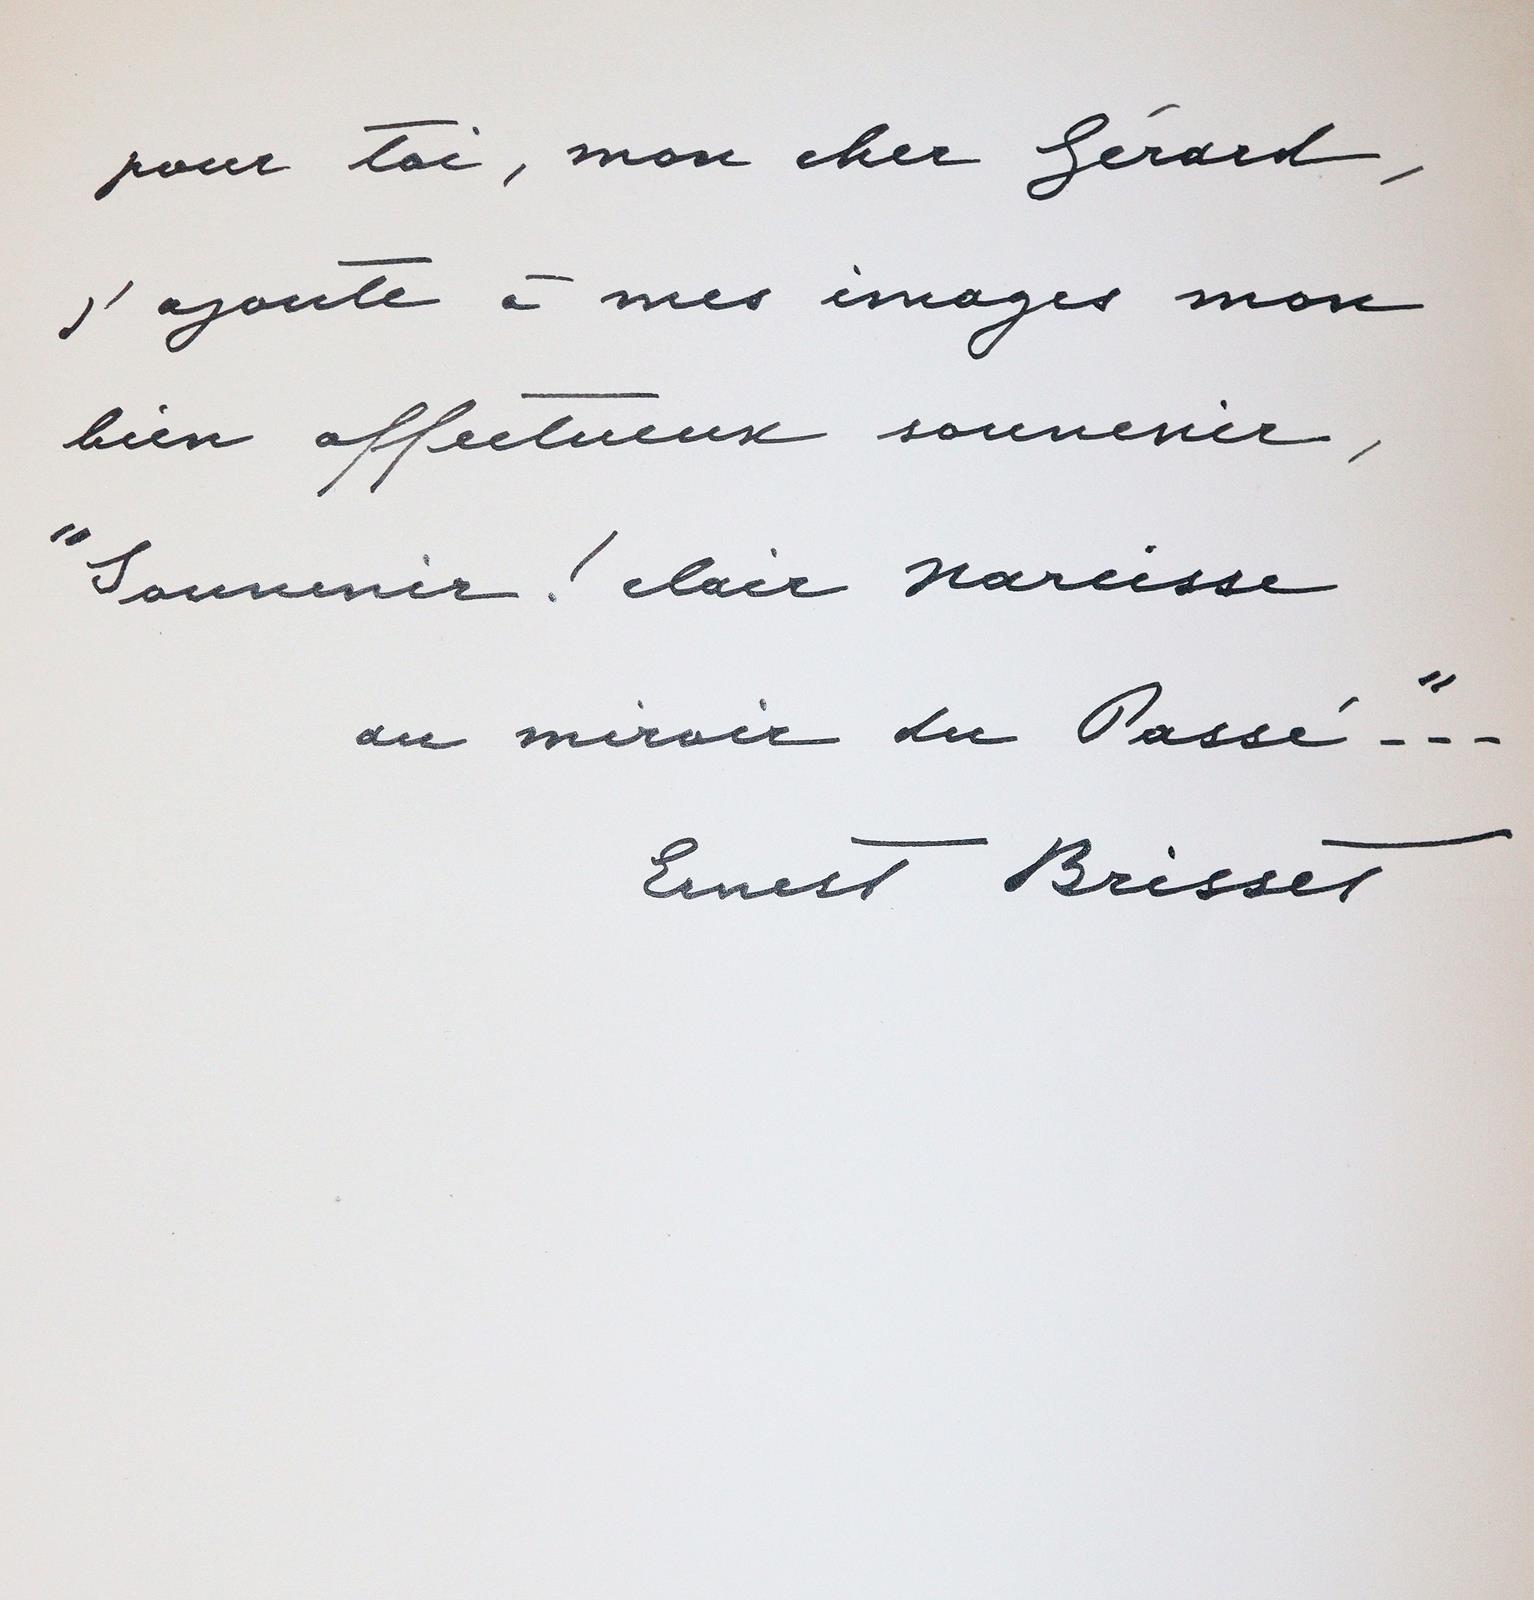 pour toi, mon cher Gérard,
j'ajoute à mes images mon
bien affectueux souvenir,
"Souvenir ! clair Narcisse
au miroir du Passé"---
Ernest Brisset